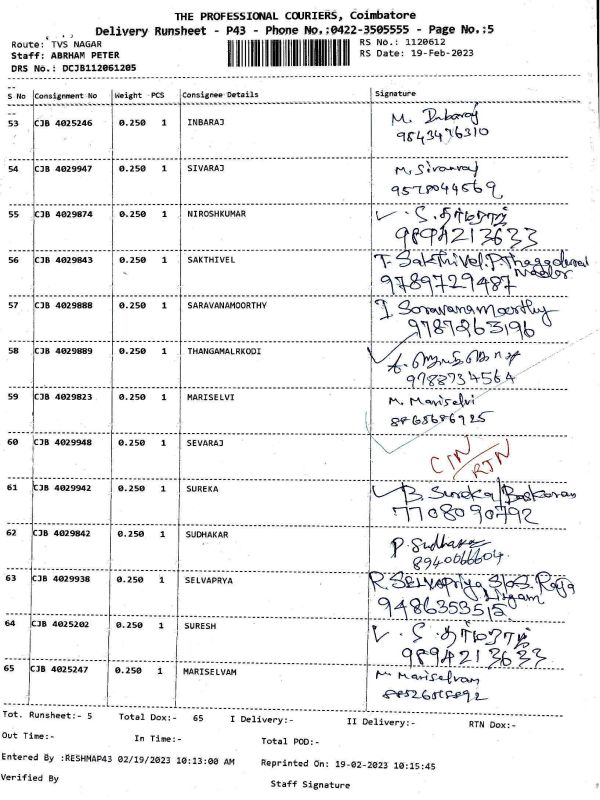 THE PROFESSIONAL COURIERS, Coimbatore
Delivery Runsheet - P43 - Phone No.:0422-3505555 - Page No.:5
Route: TVS NAGAR RS No.: 1120612
Staff: ABRHAM PETER RS Date: 19-Feb-2023
DRS No.: DCJB112061205
S No Consignment No Weight PCS Consignee Details Signature
53 CJB 4025246 0.250 1 INBARAJ M. Inbaraj
9843476310
54 CJB 4029947 0.250 1 SIVARAJ M. Sivaraj
9578044569
55 CJB 4029874 0.250 1 NIROSHKUMAR S. தர்மராஜ்
9894213633
56 CJB 4029843 0.250 1 SAKTHIVEL T. Sakthivel.P.
9789729487
57 CJB 4029888 0.250 1 SARAVANAMOORTHY I Saravanamoorthy
9787263196
58 CJB 4029889 0.250 1 THANGAMALRKODI
9788734564
59 CJB 4029823 0.250 1 MARISELVI M. Mariselvi
8865686925
60 CJB 4029948 0.250 1 SEVARAJ RTN
61 CJB 4029942 0.250 1 SUREKA B. Sureka/Baskaran
7708090792
62 CJB 4029842 0.250 1 SUDHAKAR P. Sudhakar
8940066604
63 CJB 4029938 0.250 1 SELVAPRYA R. Selvapriya S/o S. Raja
Lingam
9486353515
64 CJB 4025202 0.250 1 SURESH S. தர்மராஜ்
9894213633
65 CJB 4025247 0.250 1 MARISELVAM M Mariselvam
Tot. Runsheet:- 5 Total Dox:- 65 I Delivery:- II Delivery:- RTN Dox:-
Out Time:- In Time:- Total POD:-
Entered By :RESHMAP43 02/19/2023 10:13:00 AM Reprinted On: 19-02-2023 10:15:45
Verified By Staff Signature